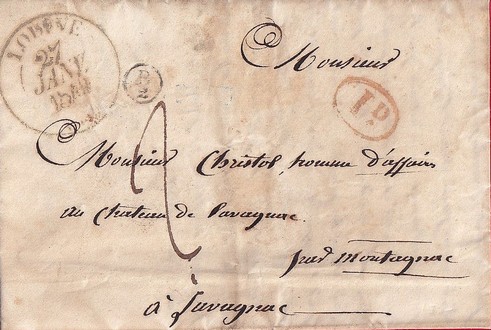 LODÈVE
27
JANV.
184
B/2
1D
2
Monsieur
Monsieur Christol, homme d'affaires
au chateau de Lavagnac
par Montagnac
à Lavagnac